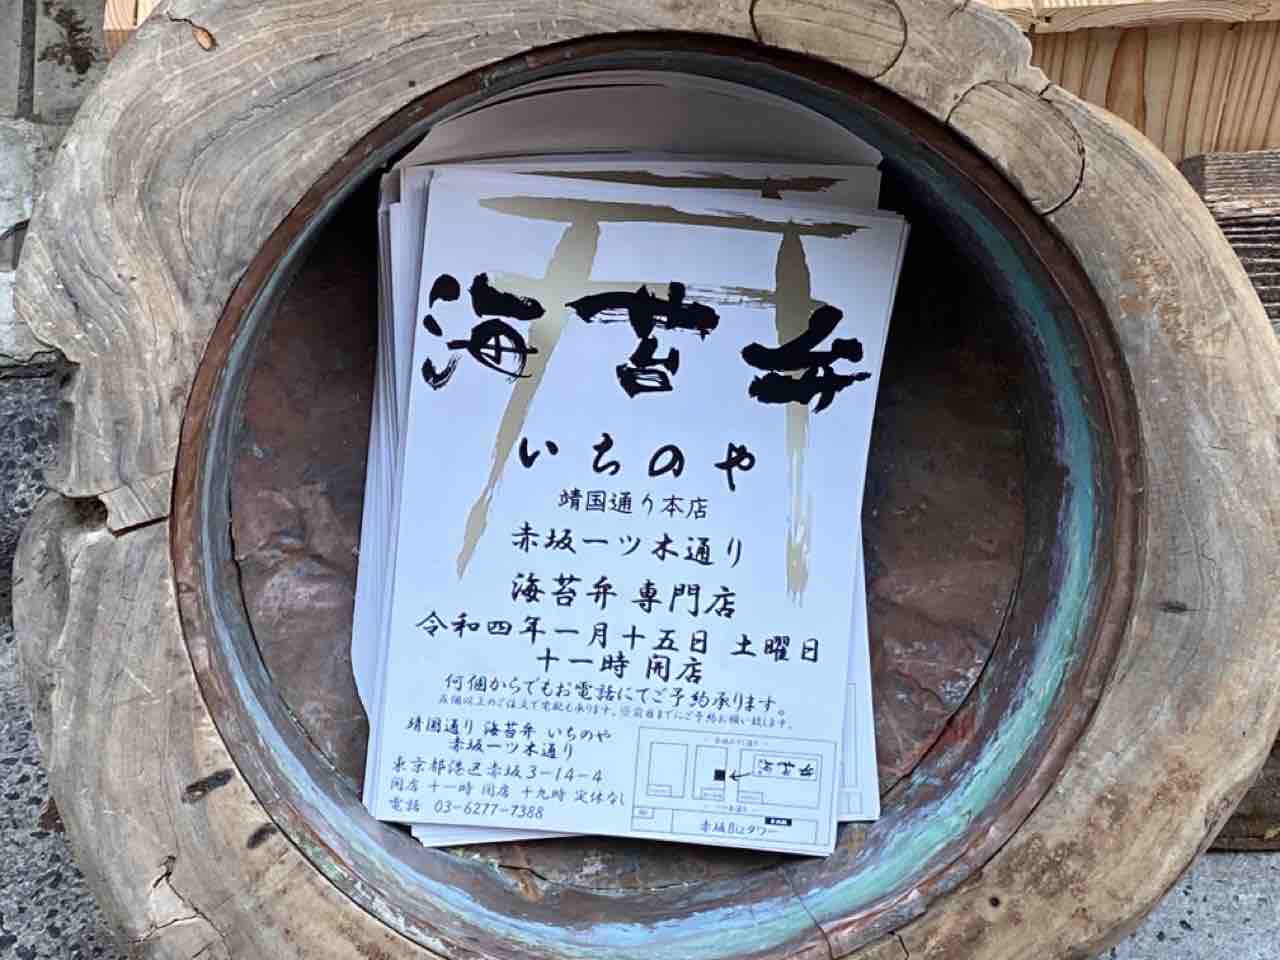 海苔弁
いちのや
靖国通り本店
赤坂一ツ木通り
海苔弁 専門店
令和四年一月十五日 土曜日
十一時 開店
何個からでもお電話にてご予約承ります。
五個以上のご注文で宅配も承ります。※前日までにご予約お願い致します。
靖国通り 海苔弁 いちのや
赤坂一ツ木通り
東京都港区赤坂3-14-4
開店 十一時 閉店 十九時 定休なし
電話 03-6277-7388
海苔弁
赤坂Bizタワー